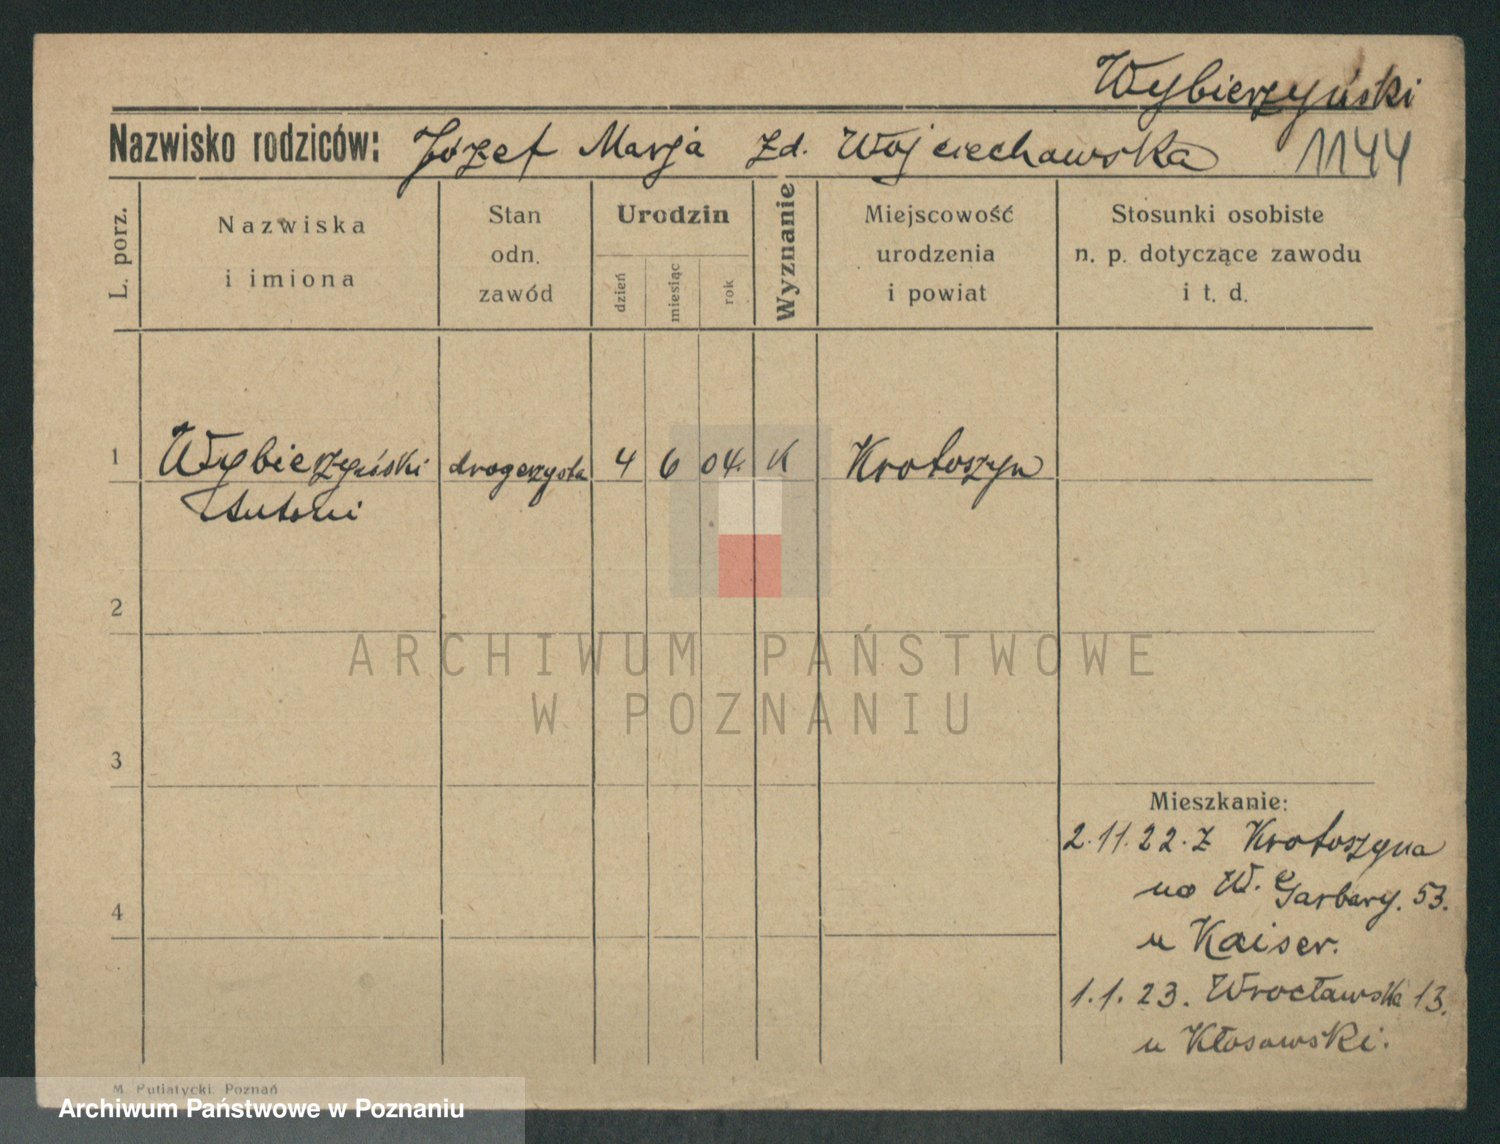 Wybierzyński
Nazwisko rodziców: Józef Marja zd. Wojciechowska 1144
L. porz.
Nazwiska
i imiona
Stan
odn.
zawód
Urodzin
dzień
miesiąc
rok
Wyznanie
Miejscowość
urodzenia
i powiat
Stosunki osobiste
n. p. dotyczące zawodu
i t. d.
1 Wybierzyński drogerzysta 4 6 04. K Krotoszyn
Antoni
2
ARCHIWUM PAŃSTWOWE
W POZNANIU
3
Mieszkanie:
2.11.22. z Krotoszyna
na W. Garbary. 53.
u Kaiser.
4
1.1.23. Wrocławska 13.
u Kłosowski.
M. Putiatycki, Poznań
Archiwum Państwowe w Poznaniu